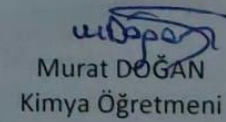 Murat DOĞAN
Kimya Öğretmeni